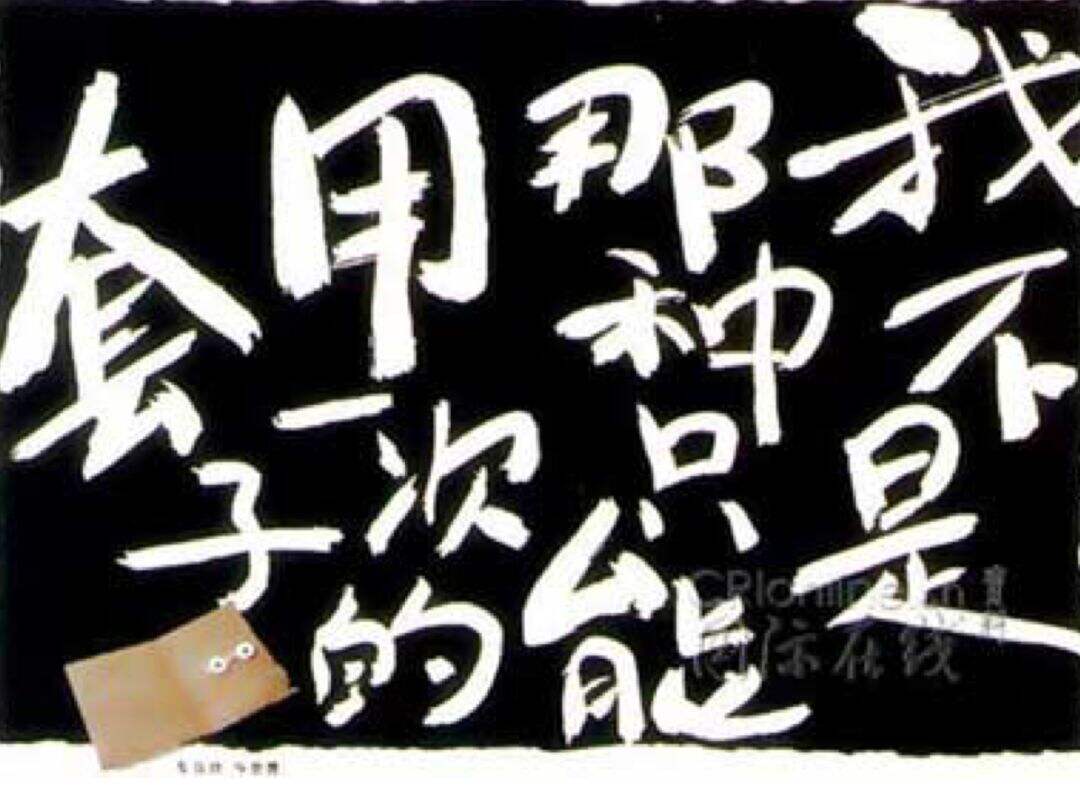 我不是
那种只能
用一次的
套子
CRIonline.cn
国际在线